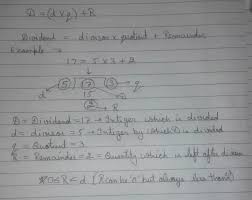 D = (d x q) + R
Dividend = divisor x quotient + Remainder
Example →
17 = 5 x 3 + 2
5 17 3 → q
d 15
2 → R
D = Dividend = 17 → Integer which is divided
d = divisor = 5 → Integer by which D is divided
q = Quotient = 3
R = Remainder = 2 = Quantity which is left after division
* 0 ≤ R < d (R can be '0' but always less than d)